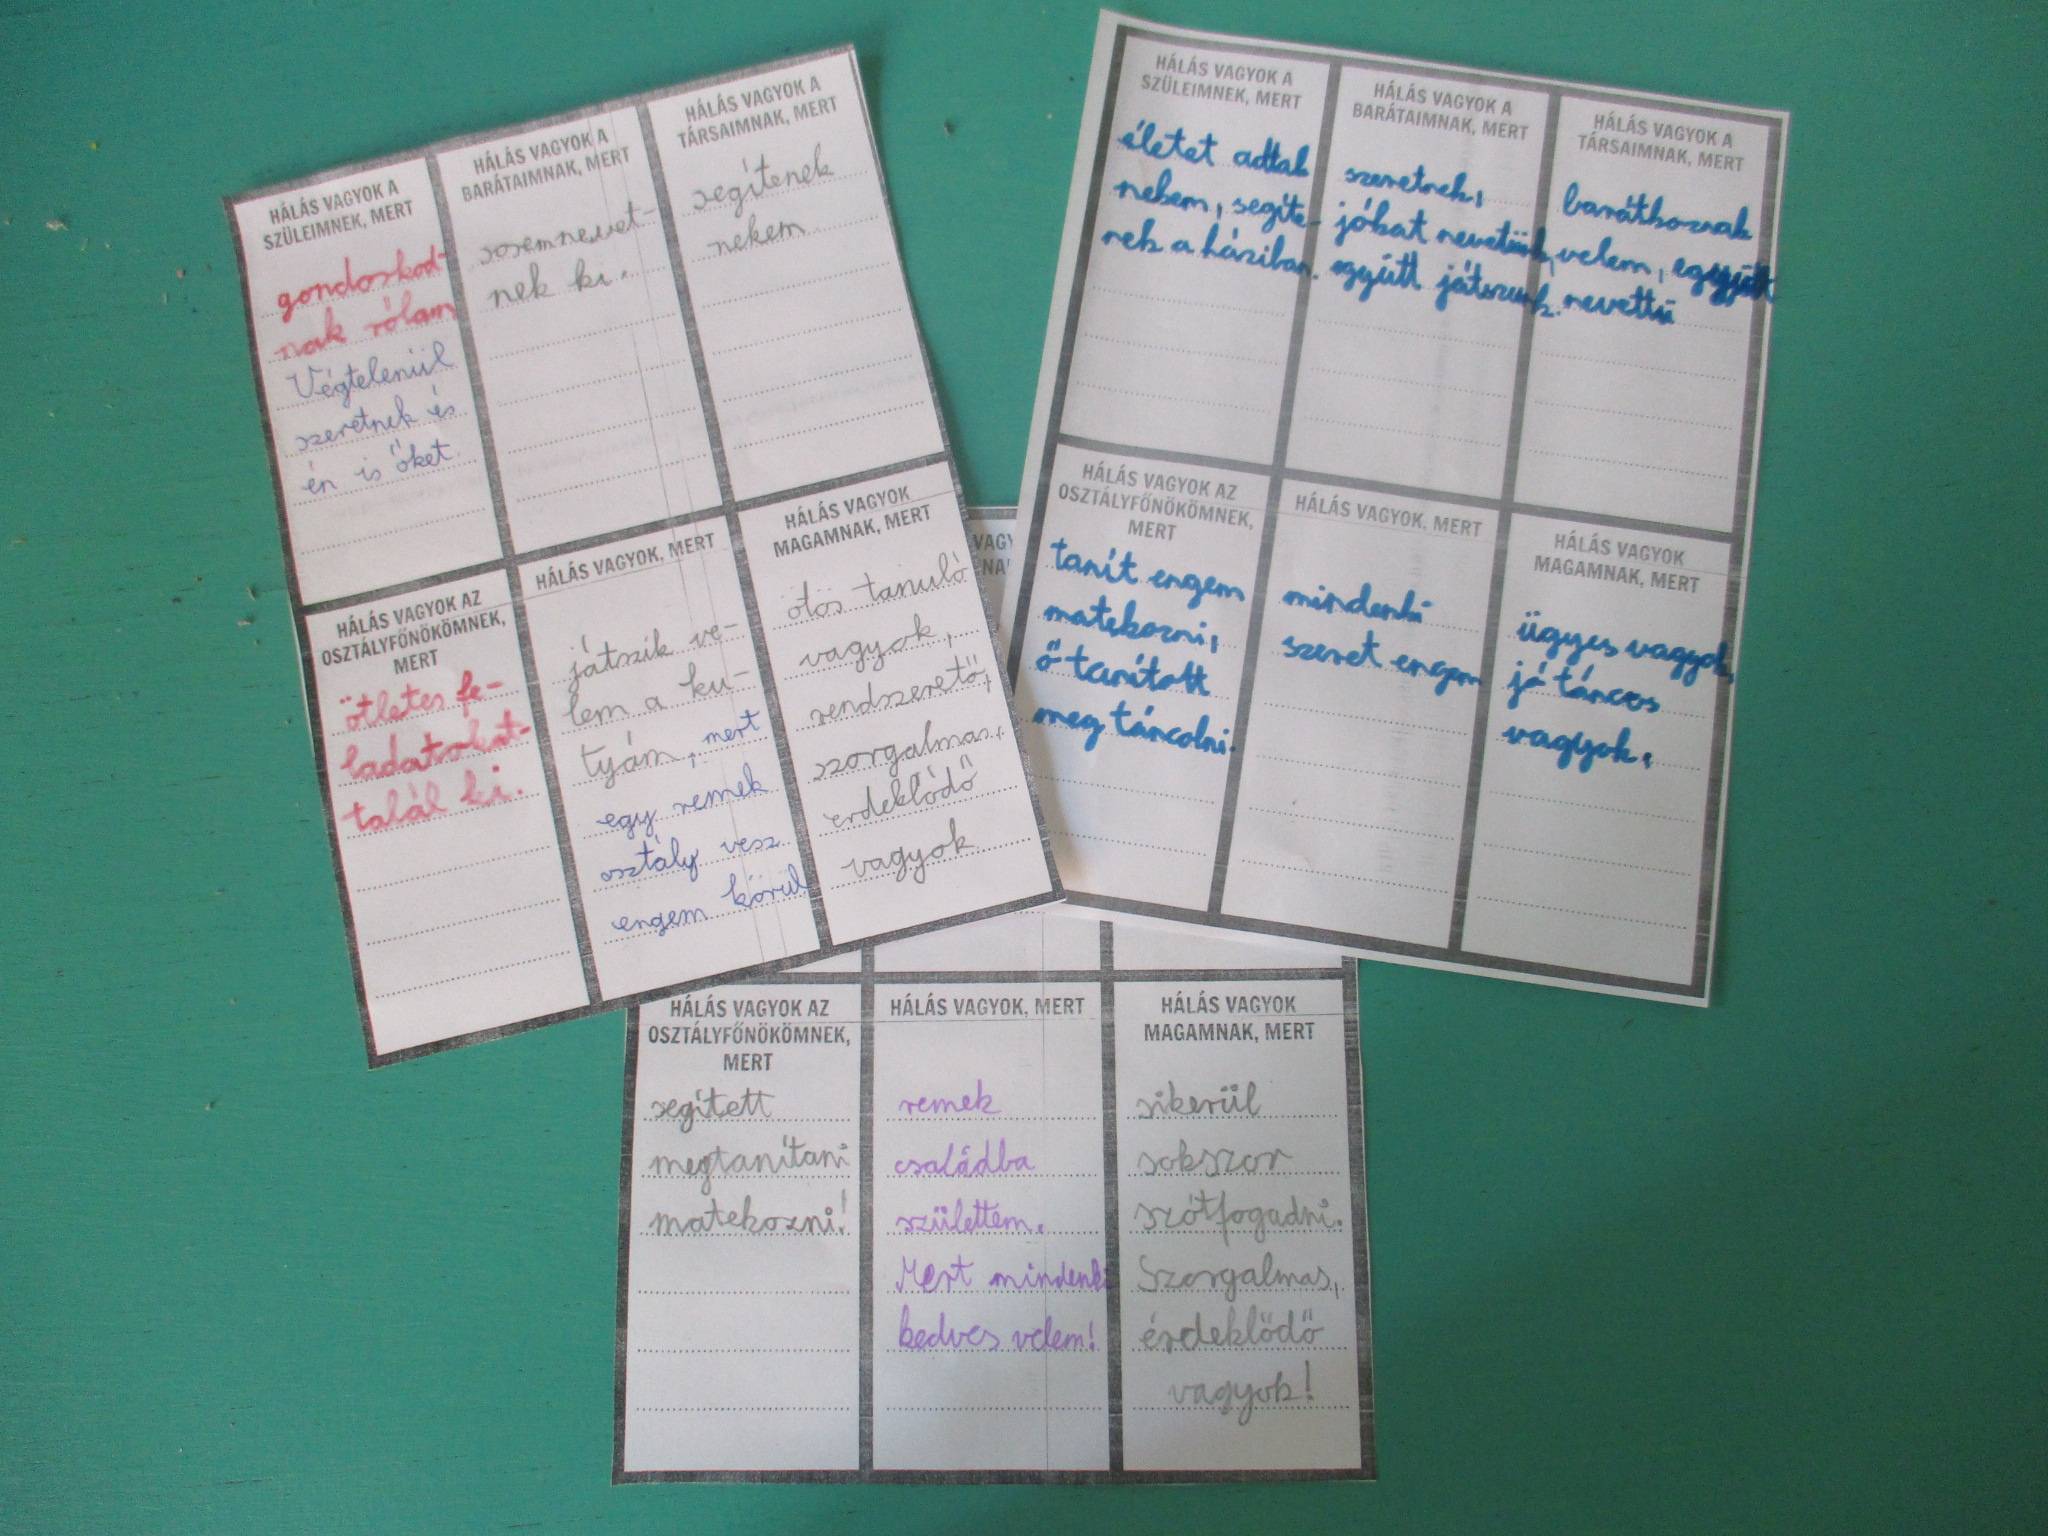 HÁLÁS VAGYOK A
SZÜLEIMNEK, MERT
gondoskod-
nak rólam
Végtelenül
szeretnek és
én is őket.
HÁLÁS VAGYOK A
BARÁTAIMNAK, MERT
sosemnevet-
nek ki.
HÁLÁS VAGYOK A
TÁRSAIMNAK, MERT
segítenek
nekem
HÁLÁS VAGYOK AZ
OSZTÁLYFŐNÖKÖMNEK,
MERT
ötletes fe-
ladatokat
talál ki.
HÁLÁS VAGYOK, MERT
játszik ve-
lem a ku-
tyám, mert
egy remek
osztály vesz
engem körül
HÁLÁS VAGYOK
MAGAMNAK, MERT
ötös tanuló
vagyok,
rendszerető,
szorgalmas,
érdeklődő
vagyok
HÁLÁS VAGYOK A
SZÜLEIMNEK, MERT
életet adtak
nekem, segíte-
nek a háziban.
HÁLÁS VAGYOK A
BARÁTAIMNAK, MERT
szeretnek,
jókat nevetünk,
együtt játszunk.
HÁLÁS VAGYOK A
TÁRSAIMNAK, MERT
barátkoznak
velem, együtt
nevettü
HÁLÁS VAGYOK AZ
OSZTÁLYFŐNÖKÖMNEK,
MERT
tanít engem
matekozni,
ő tanított
meg táncolni.
HÁLÁS VAGYOK, MERT
mindenki
szeret engem
HÁLÁS VAGYOK
MAGAMNAK, MERT
ügyes vagyok,
jó táncos
vagyok.
HÁLÁS VAGYOK AZ
OSZTÁLYFŐNÖKÖMNEK,
MERT
segített
megtanítani
matekozni!
HÁLÁS VAGYOK, MERT
remek
családba
születtem.
Mert mindenki
kedves velem!
HÁLÁS VAGYOK
MAGAMNAK, MERT
sikerül
sokszor
szótfogadni.
Szorgalmas,
érdeklődő
vagyok!